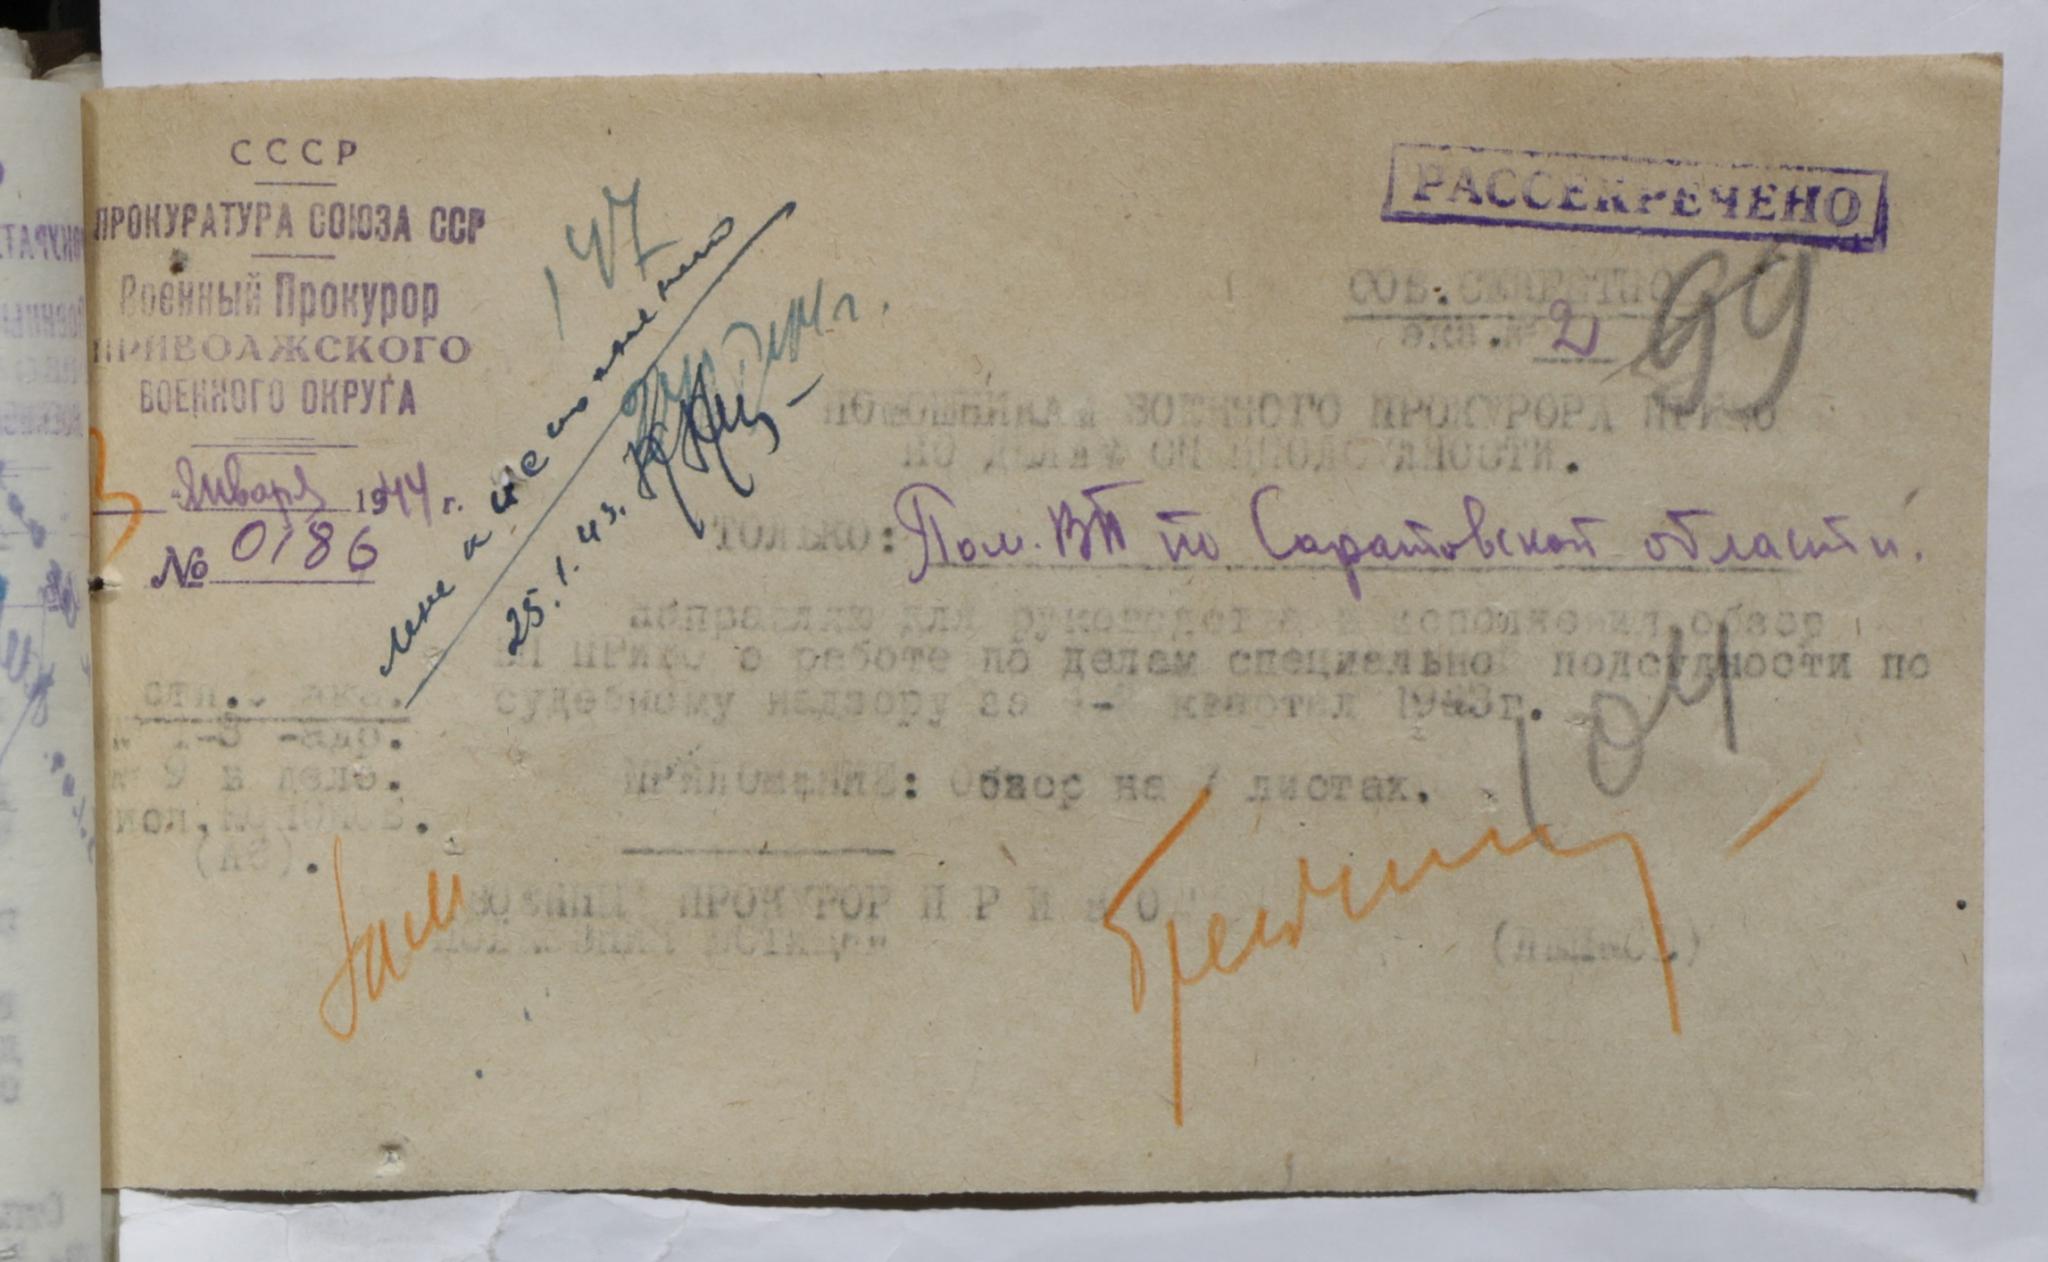 СССР
ПРОКУРАТУРА СОЮЗА ССР
Военный Прокурор
ПРИВОЛЖСКОГО
ВОЕННОГО ОКРУГА
января 1944 г.
№ 0186
147
25.1.43.
РАССЕКРЕЧЕНО
СОВ.СЕКРЕТНО
экз.№ 2
99
ПОМОЩНИКАМ ВОЕННОГО ПРОКУРОРА ПРИВО
ПО ДЕЛАМ СПЕЦПОДСУДНОСТИ.
ТОЛЬКО: Пом. ВП по Саратовской области.
Направляю для руководства и исполнения обзор
ВП ПРИВО о работе по делам специальной подсудности по
судебному надзору за квартал 1943г.
104
ПРИЛОЖЕНИЕ: Обзор на 7 листах.
экз.
1-8 -адр.
9 в деле.
исп.
ВОЕННЫЙ ПРОКУРОР П Р И В О
ЮСТИЦИИ
Зам